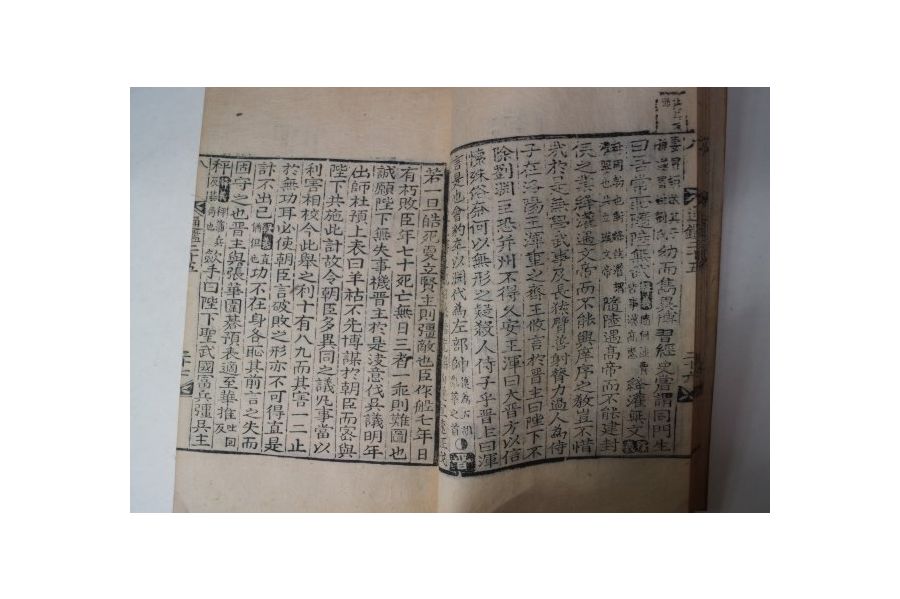 幼而雋異博習經史嘗謂同門生
曰吾常恥隨陸無武 絳灌無文
隨陸遇高帝而不能建封
侯之業絳灌遇文帝而不能興庠序之敎豈不惜
哉於是 學武事及長猿臂善射膂力過人為侍
子在洛陽王渾重之齊王攸言於晉主曰陛下不
除劉淵臣恐幷州不得久安王渾曰大晉方以信
懷殊俗奈何以無形之疑殺人侍子乎晉主曰渾
言是也會豹卒以淵代為左部帥
若一旦皓死更立賢主則彊敵也臣作船七年日
有朽敗臣年七十死亡無日三者一乖則難圖也
誠願陛下無失事機晉主於是決意伐吳議明年
出師杜預上表曰羊祜不先博謀於朝臣而密與
陛下共施此計故令朝臣多異同之議凡事當以
利害相校今此擧之利十有八九而其害一二止
於無功耳必使朝臣言破敗之形亦不可得直是
計不出已 功不在身各恥其前言之失而
固守之也晉主與張華圍碁預表適至華推
枰 斂手曰陛下聖武國富兵彊吳主
通鑑二十五